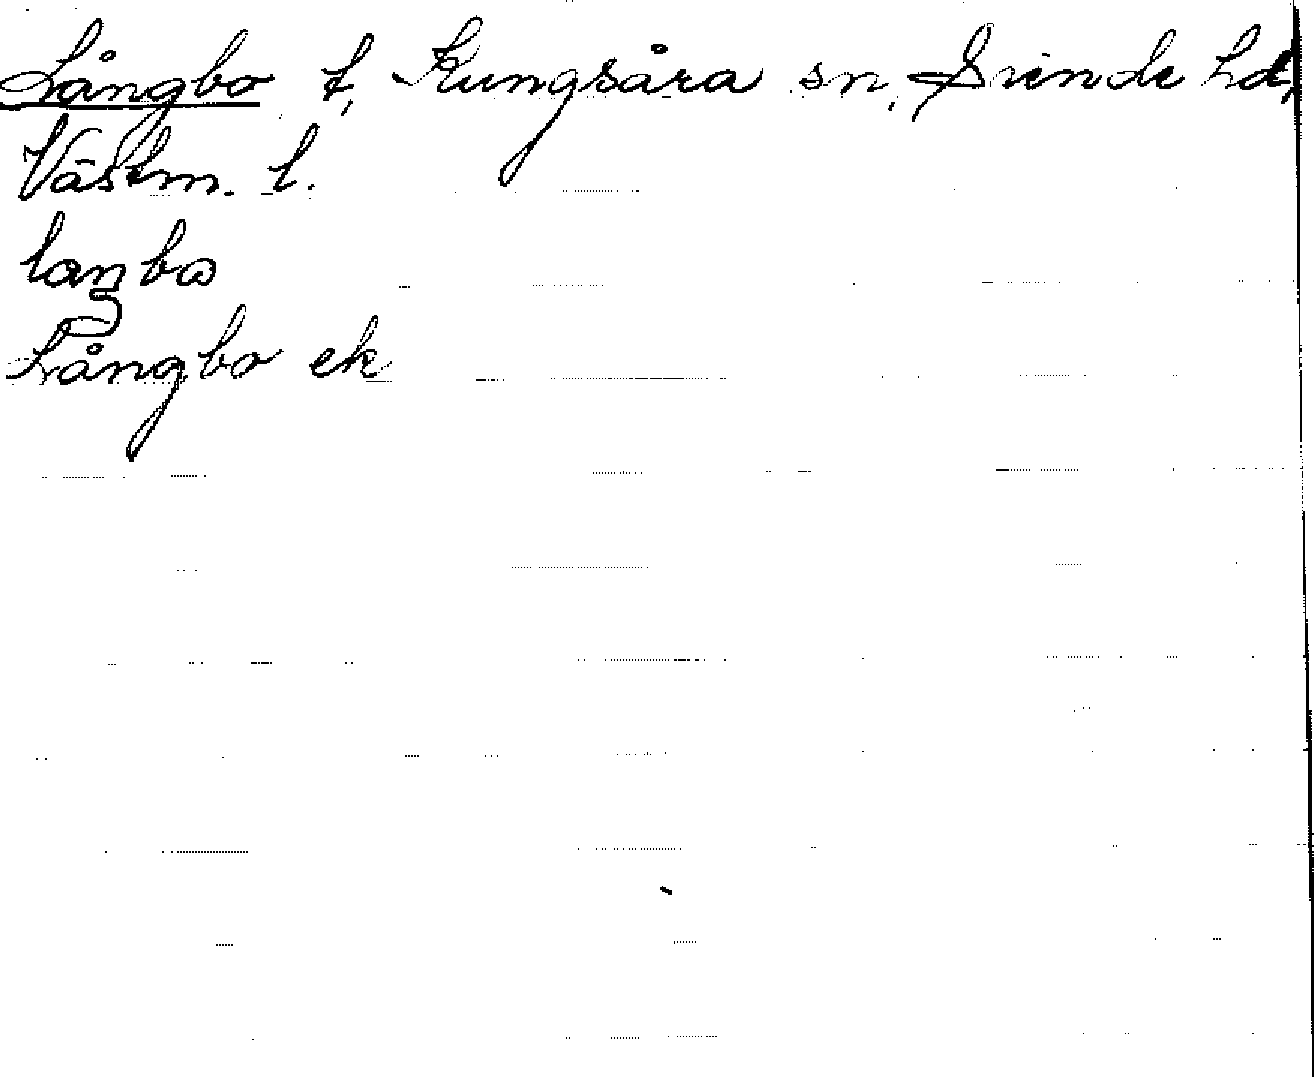 Långbo t, Kungsåra sn, Siende hd,
Västm. l.
langbo
Långbo ek